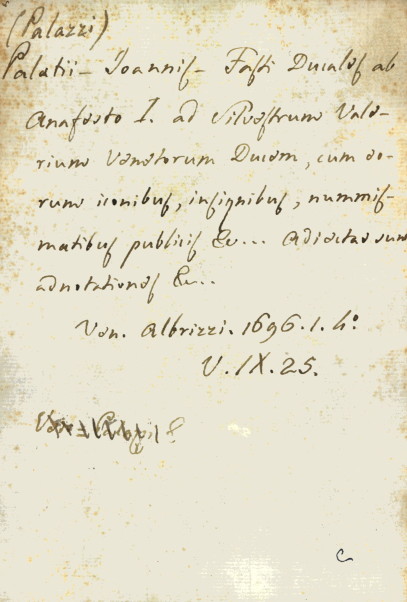 (Palazzi)
Palatii - Joannis - Fasti Ducales ab
Anafesto I. ad Silvestrum Vale-
rium Venetorum Ducem, cum eo-
rum iconibus, insignibus, nummis-
matibus publicis &c... Adiectae sunt
adnotationes &c..
Ven. Albrizzi. 1696. 1. 4º
V. IX. 25.